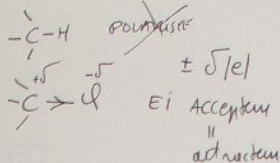 -C-H POLARISÉE
+δ -δ ± δ|e|
-C→Cl Ei Accepteur
=
attracteur